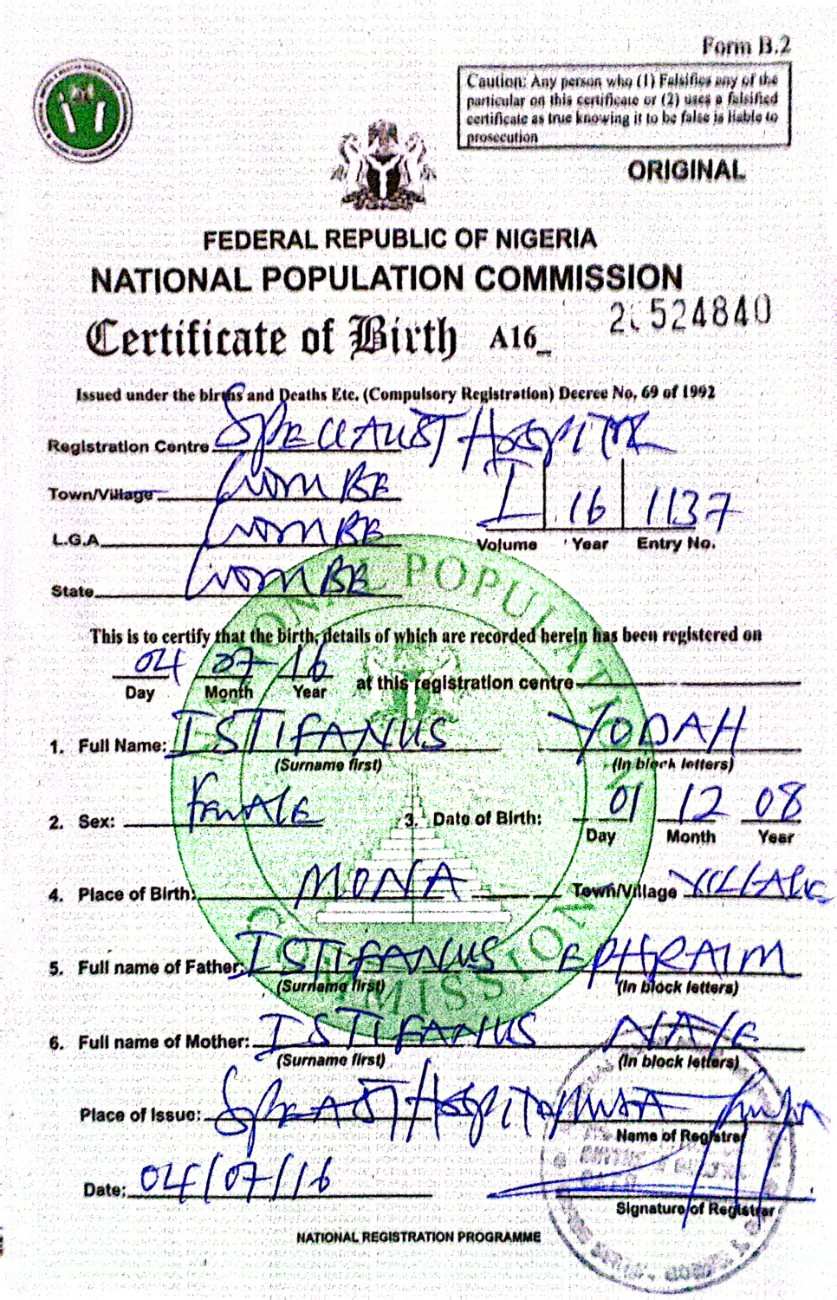 Form B.2
Caution: Any person who (1) Falsifies any of the
particular on this certificate or (2) uses a falsified
certificate as true knowing it to be false is liable to
prosecution
ORIGINAL
FEDERAL REPUBLIC OF NIGERIA
NATIONAL POPULATION COMMISSION
Certificate of Birth A16_ 524840
Issued under the births and Deaths Etc. (Compulsory Registration) Decree No, 69 of 1992
Registration Centre SPECIALIST HOSPITAL
Town/Village GOMBE
L.G.A GOMBE
I 16 1137
Volume Year Entry No.
State GOMBE
NATIONAL POPULATION COMMISSION
This is to certify that the birth, details of which are recorded herein has been registered on
04 07 16
Day Month Year at this registration centre
1. Full Name: ISTIFANUS YODAH
(Surname first) (In block letters)
2. Sex: FEMALE 3. Date of Birth: 01 12 08
Day Month Year
4. Place of Birth: MONA Town/Village VILLAGE
5. Full name of Father: ISTIFANUS EPHRAIM
(Surname first) (In block letters)
6. Full name of Mother: ISTIFANUS
(Surname first) (In block letters)
Place of Issue: HOSPITAL
Name of Registrar
Date: 04/07/16
Signature of Registrar
NATIONAL REGISTRATION PROGRAMME